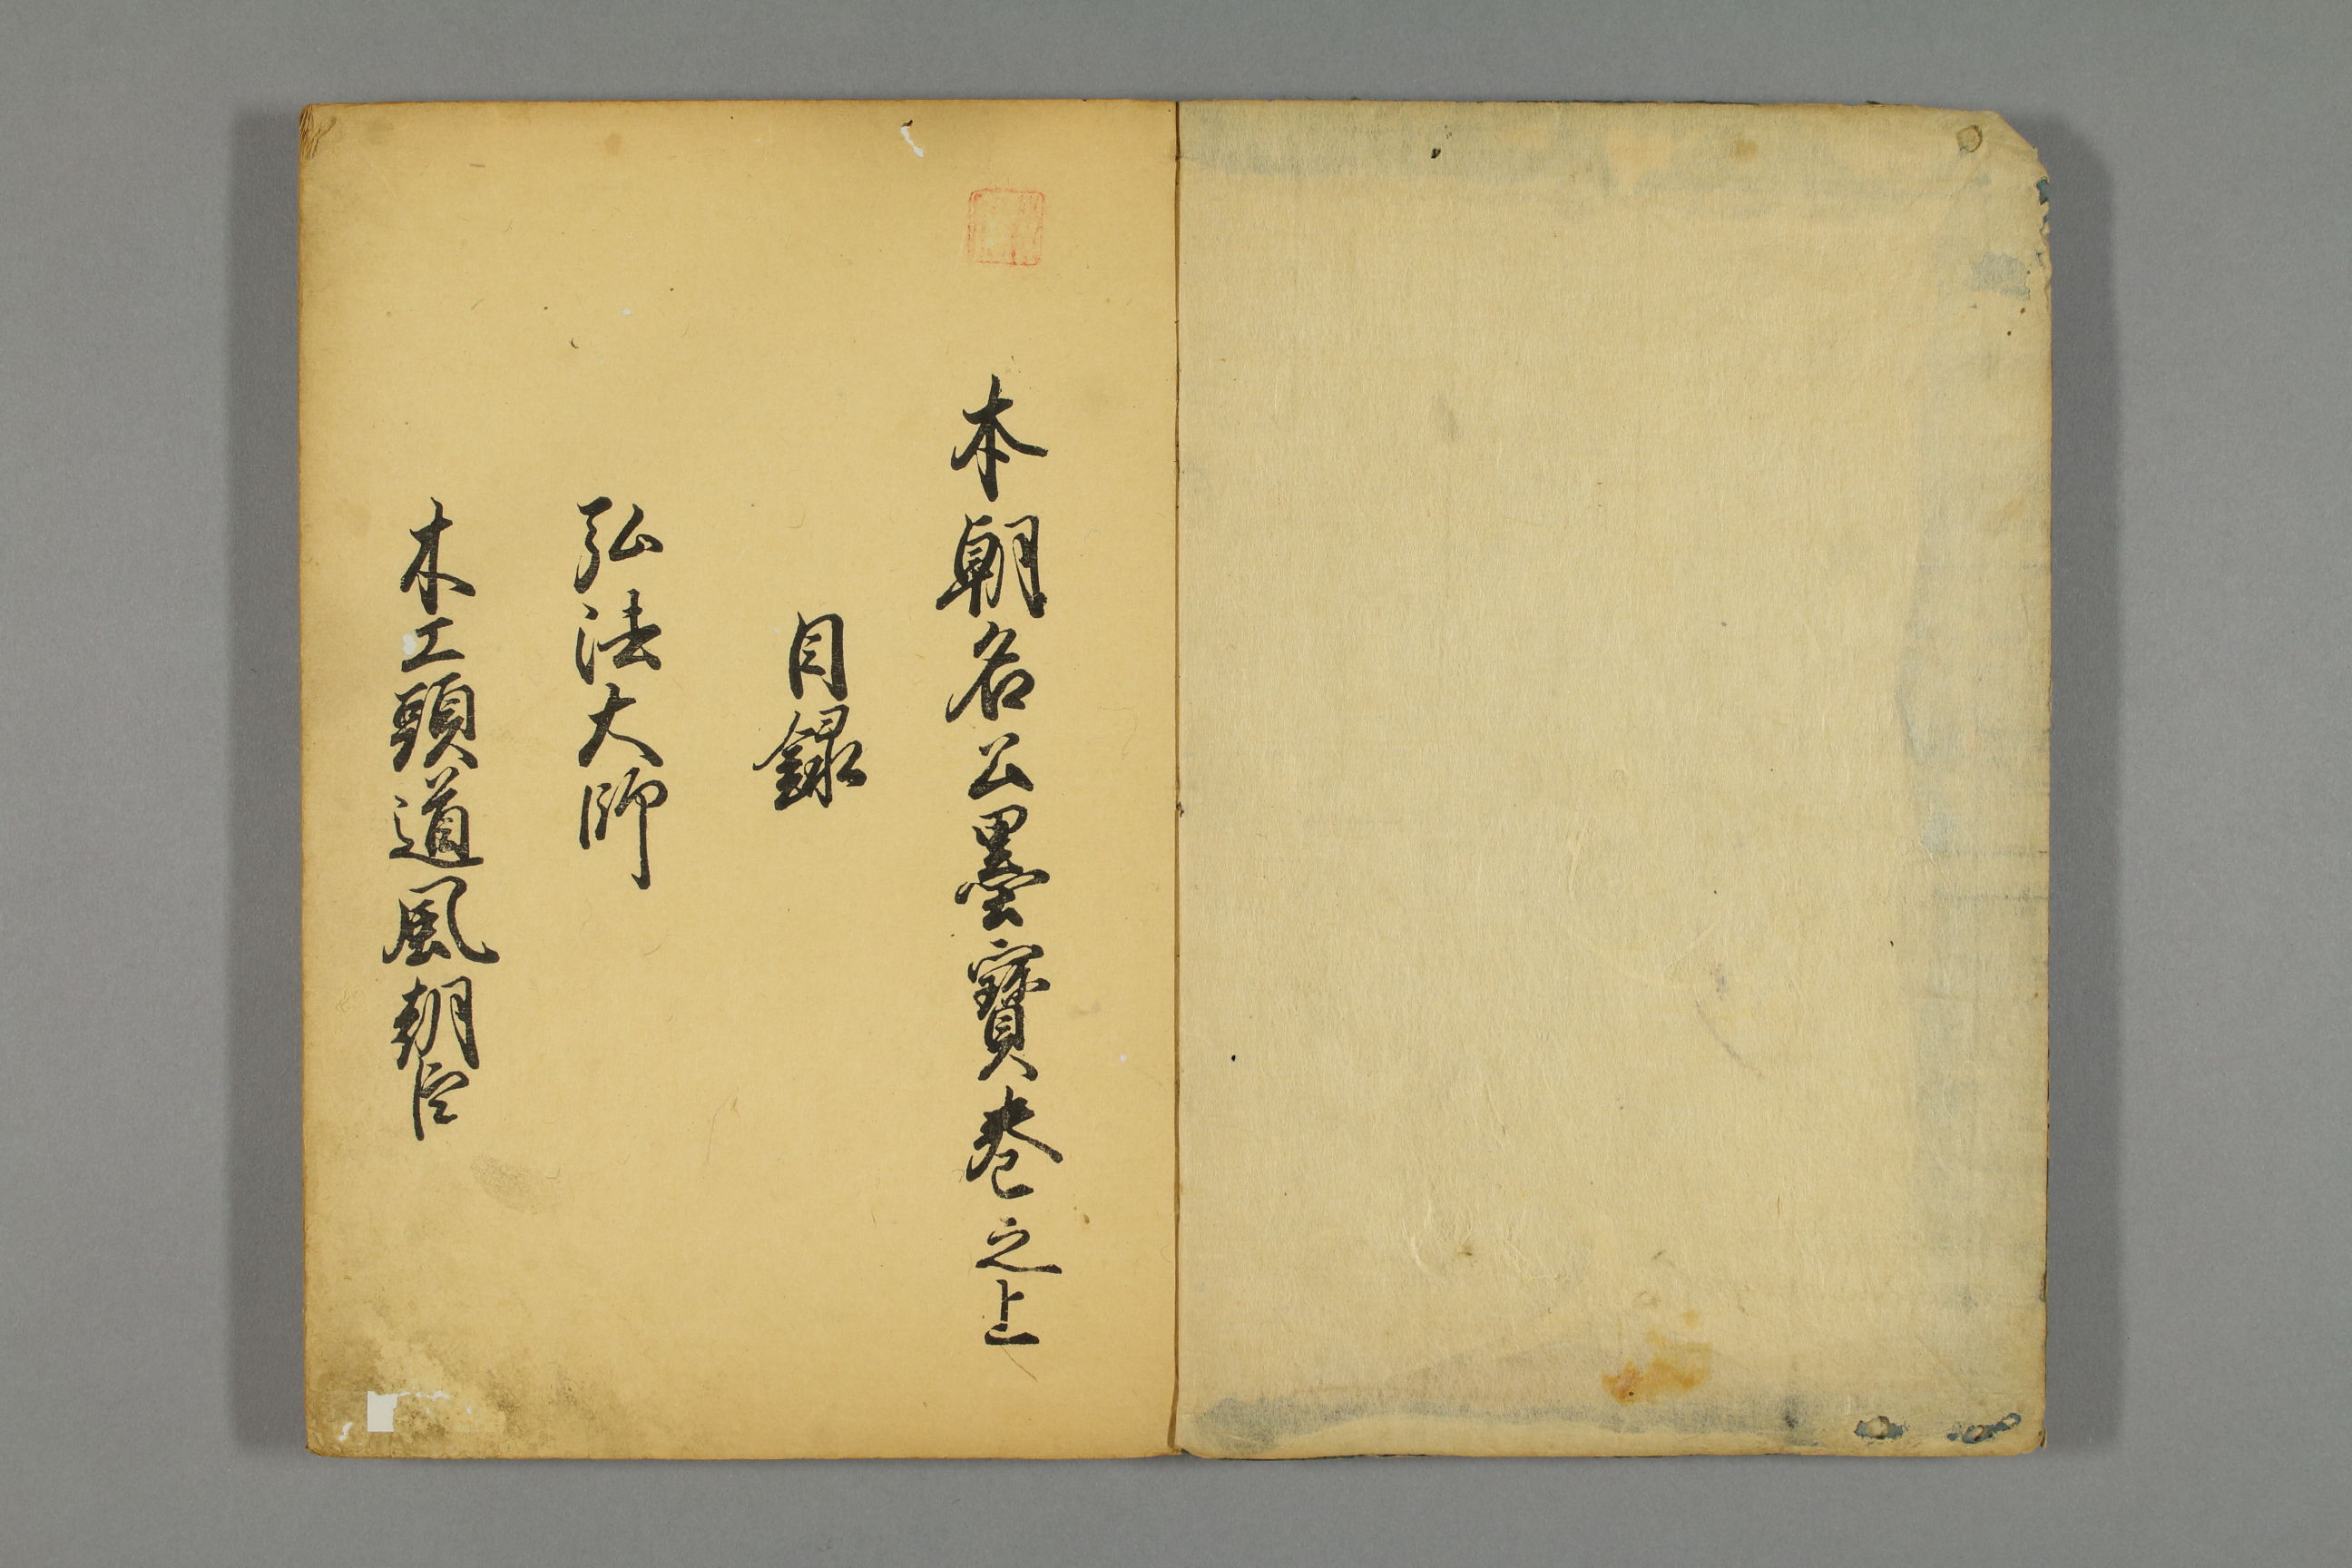 本朝名公墨寳巻之上
目録
弘法大師
木工頭道風朝臣